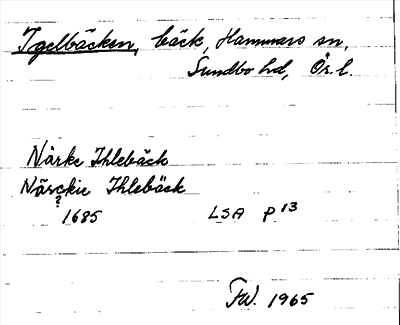 Igelbäcken, bäck, Hammars sn,
Sundbo hd, Ör. l.
Närke Ihlebäck
Närckie Ihlebäck
?
1685 LSA P. 13
FW. 1965